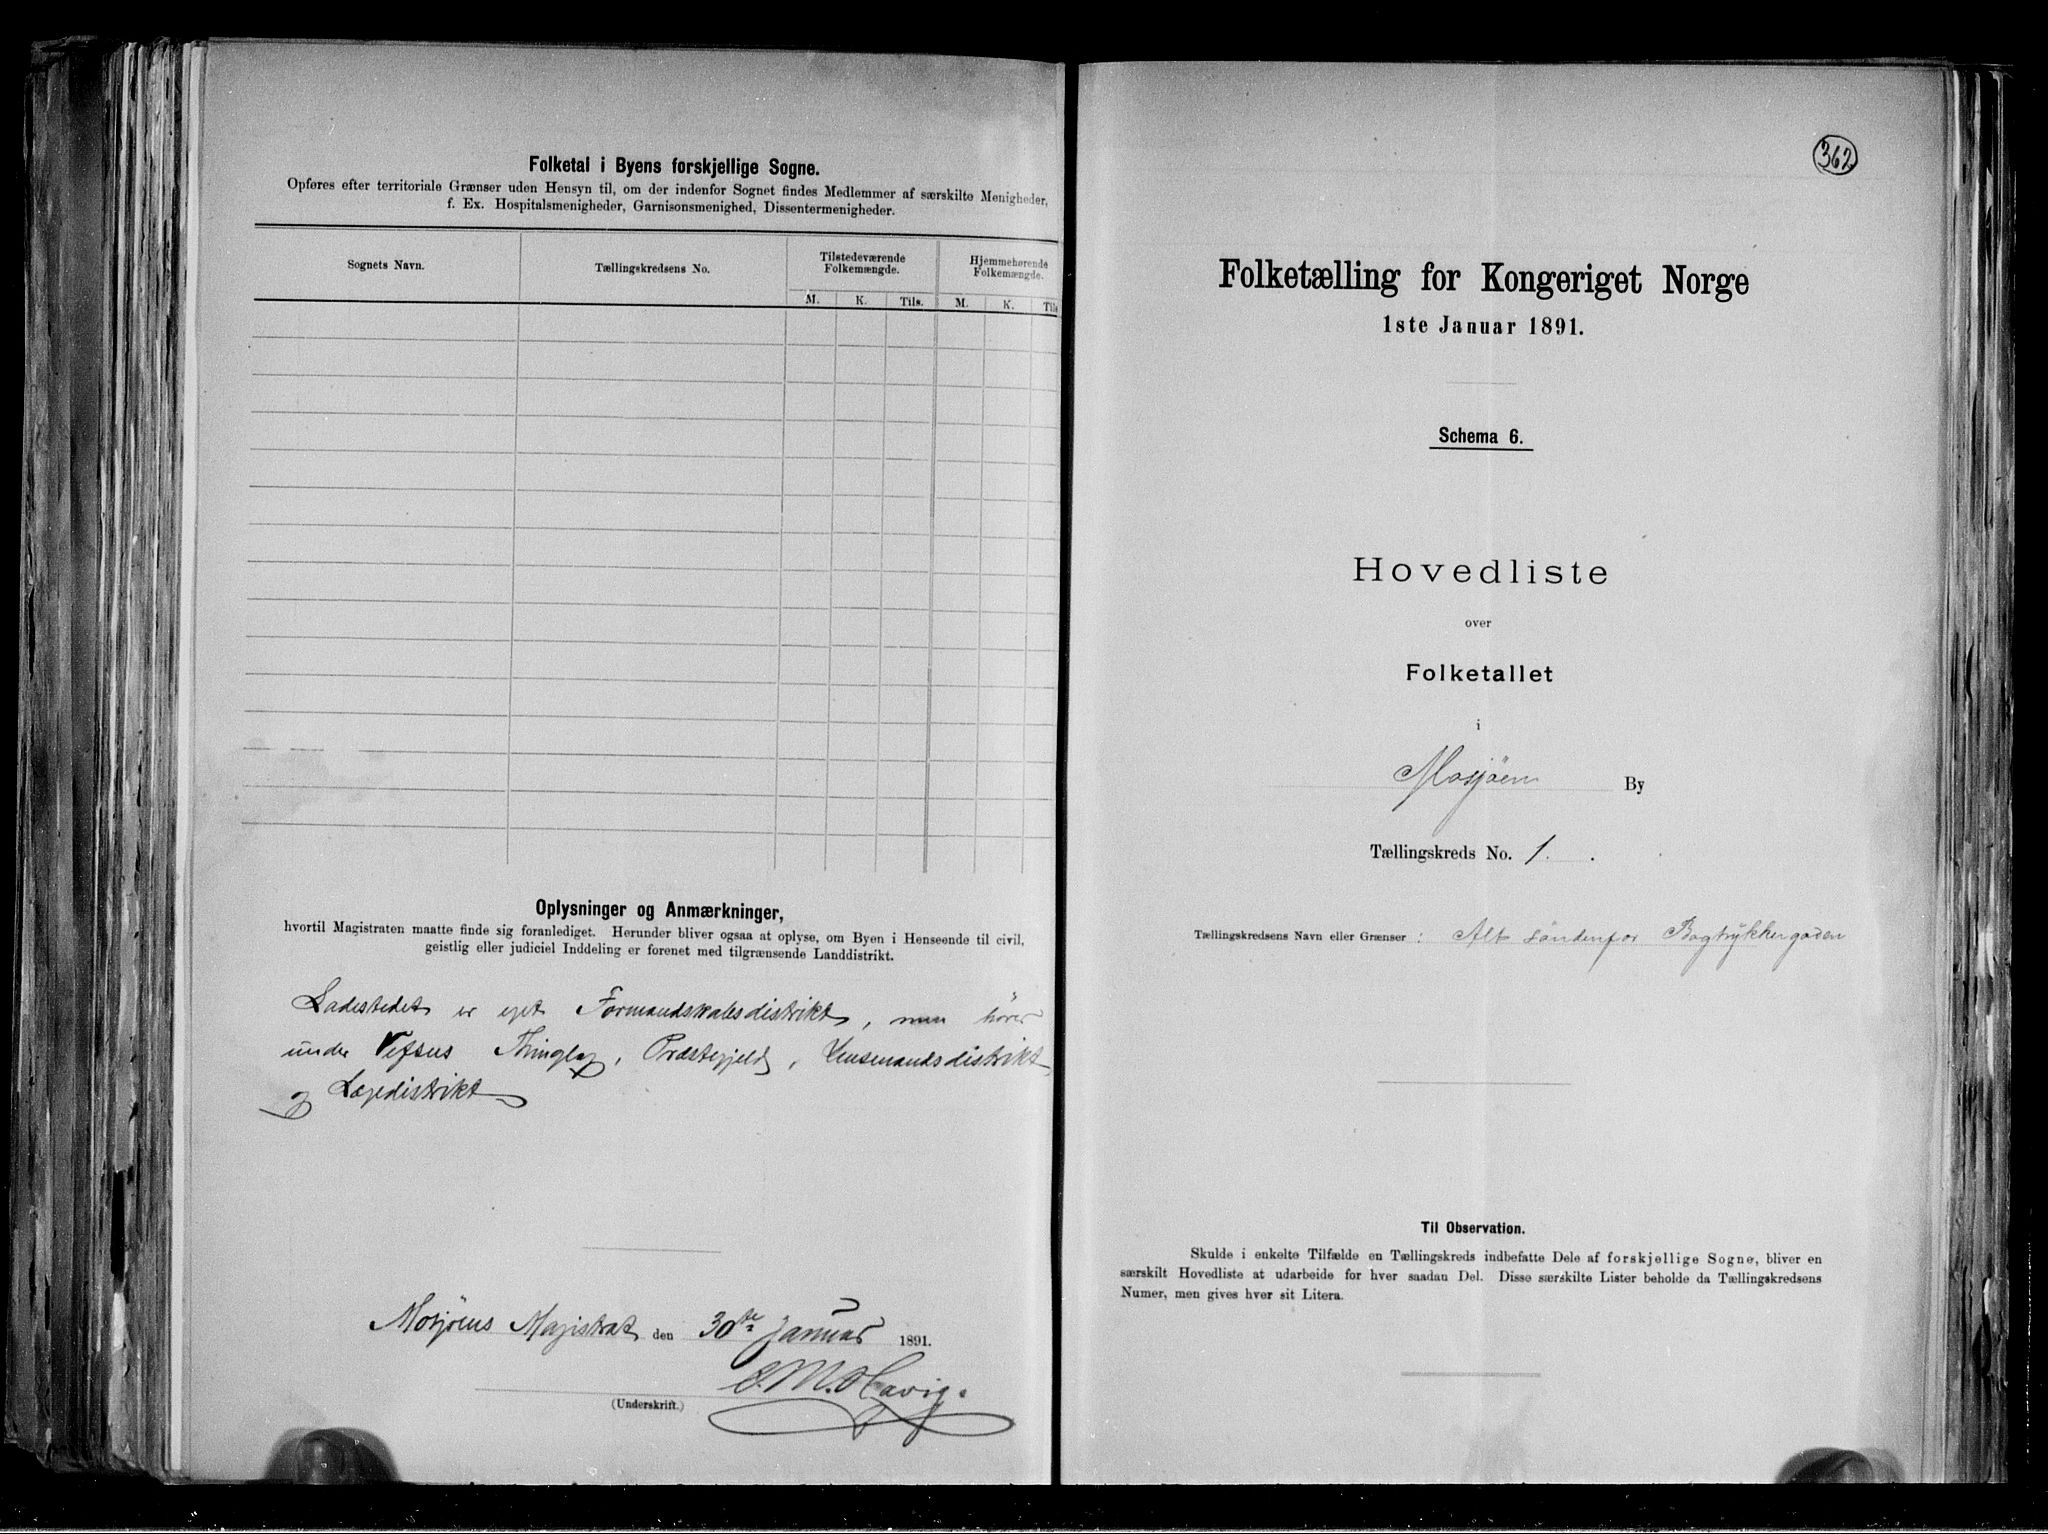 Folketal i Byens forskjellige Sogne.
Opføres efter territoriale Grænser uden Hensyn til, om der indenfor Sognet findes Medlemmer af særskilte Menigheder,
f. Ex. Hospitalsmenigheder, Garnisonsmenighed, Dissentermenigheder.
Sognets Navn. Tællingskredsens No. Tilstedeværende Folkemængde. Hjemmehørende Folkemængde.
M. K. Tils. M. K. Tils
Oplysninger og Anmærkninger,
hvortil Magistraten maatte finde sig foranlediget. Herunder bliver ogsaa at oplyse, om Byen i Henseende til civil,
geistlig eller judiciel Inddeling er forenet med tilgrænsende Landdistrikt.
Ladestedet er eget Formandskabsdistrikt, men hører
under Vefsns Thinglag, Præstegjeld, Lensmandsdistrikt
og Lægedistrikt
Mosjøens Magistrat den 30te Januar 1891.
(Underskrift.)
362
Folketælling for Kongeriget Norge
1ste Januar 1891.
Schema 6.
Hovedliste
over
Folketallet
i
Mosjöen By
Tællingskreds No. 1.
Tællingskredsens Navn eller Grænser: Alt söndenfor Bogtrykkergaden
Til Observation.
Skulde i enkelte Tilfælde en Tællingskreds indbefatte Dele af forskjellige Sogne, bliver en
særskilt Hovedliste at udarbeide for hver saadan Del. Disse særskilte Lister beholde da Tællingskredsens
Numer, men gives hver sit Litera.